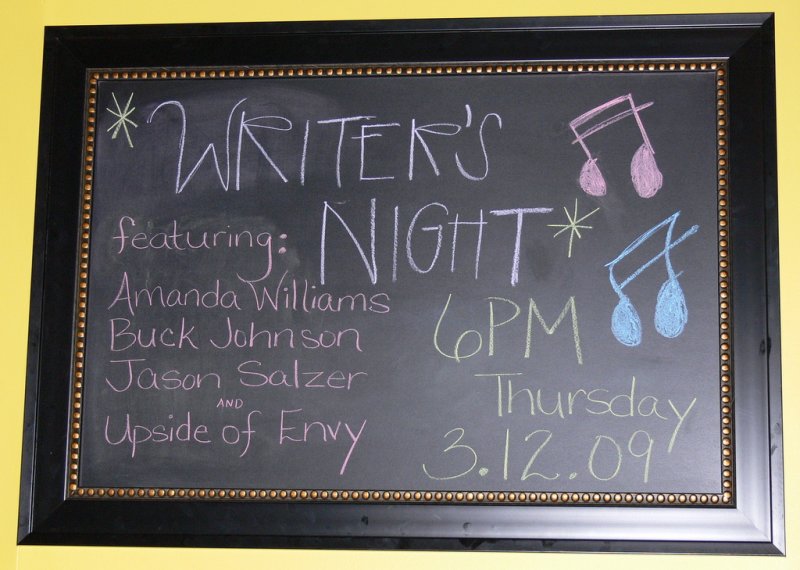 WRITER'S
NIGHT
featuring:
Amanda Williams
Buck Johnson
Jason Salzer
AND
Upside of Envy
6PM
Thursday
3.12.09